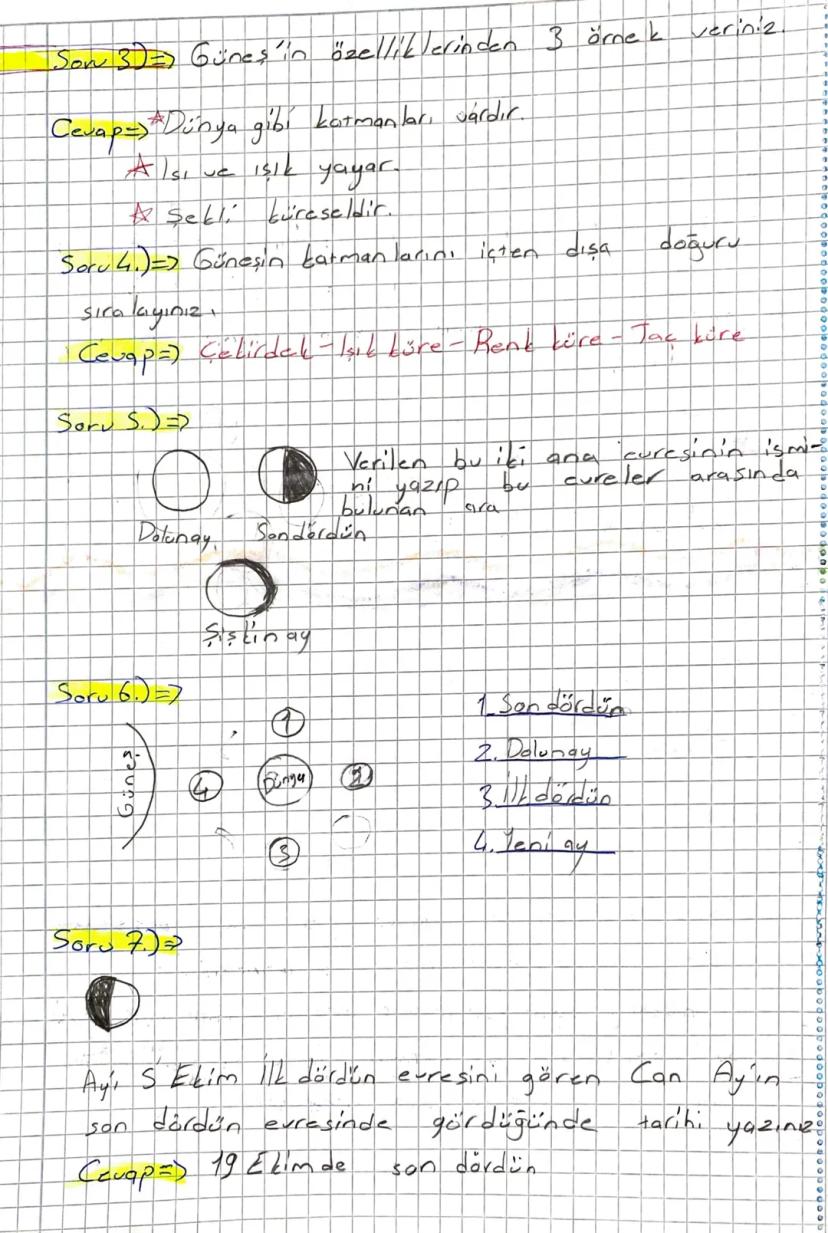 Soru 3)=> Güneş'in özelliklerinden 3 örnek veriniz.
Cevap=> *Dünya gibi katmanları vardır.
* Isı ve ışık yayar.
* Şekli küreseldir.
Soru 4.)=> Güneşin katmanlarını içten dışa doğuru
sıralayınız.
Cevap=) Çekirdek-Işık küre-Renk küre-Taç küre
Soru 5.)=>
Verilen bu iki ana evresinin ismi-
ni yazıp bu evreler arasında
bulunan ara
Dolunay, Sondördün
Şişkin ay
Soru 6.)=>
Güneş
1
4
Dünya
2
3
1. Son dördün
2. Dolunay
3. İlk dördün
4. Yeni ay
Soru 7.)=>
Ay'ı 5 Ekim İlk dördün evresini gören Can Ay'ın
son dördün evresinde gördüğünde tarihi yazınız
Cevap=) 19 Ekimde son dördün